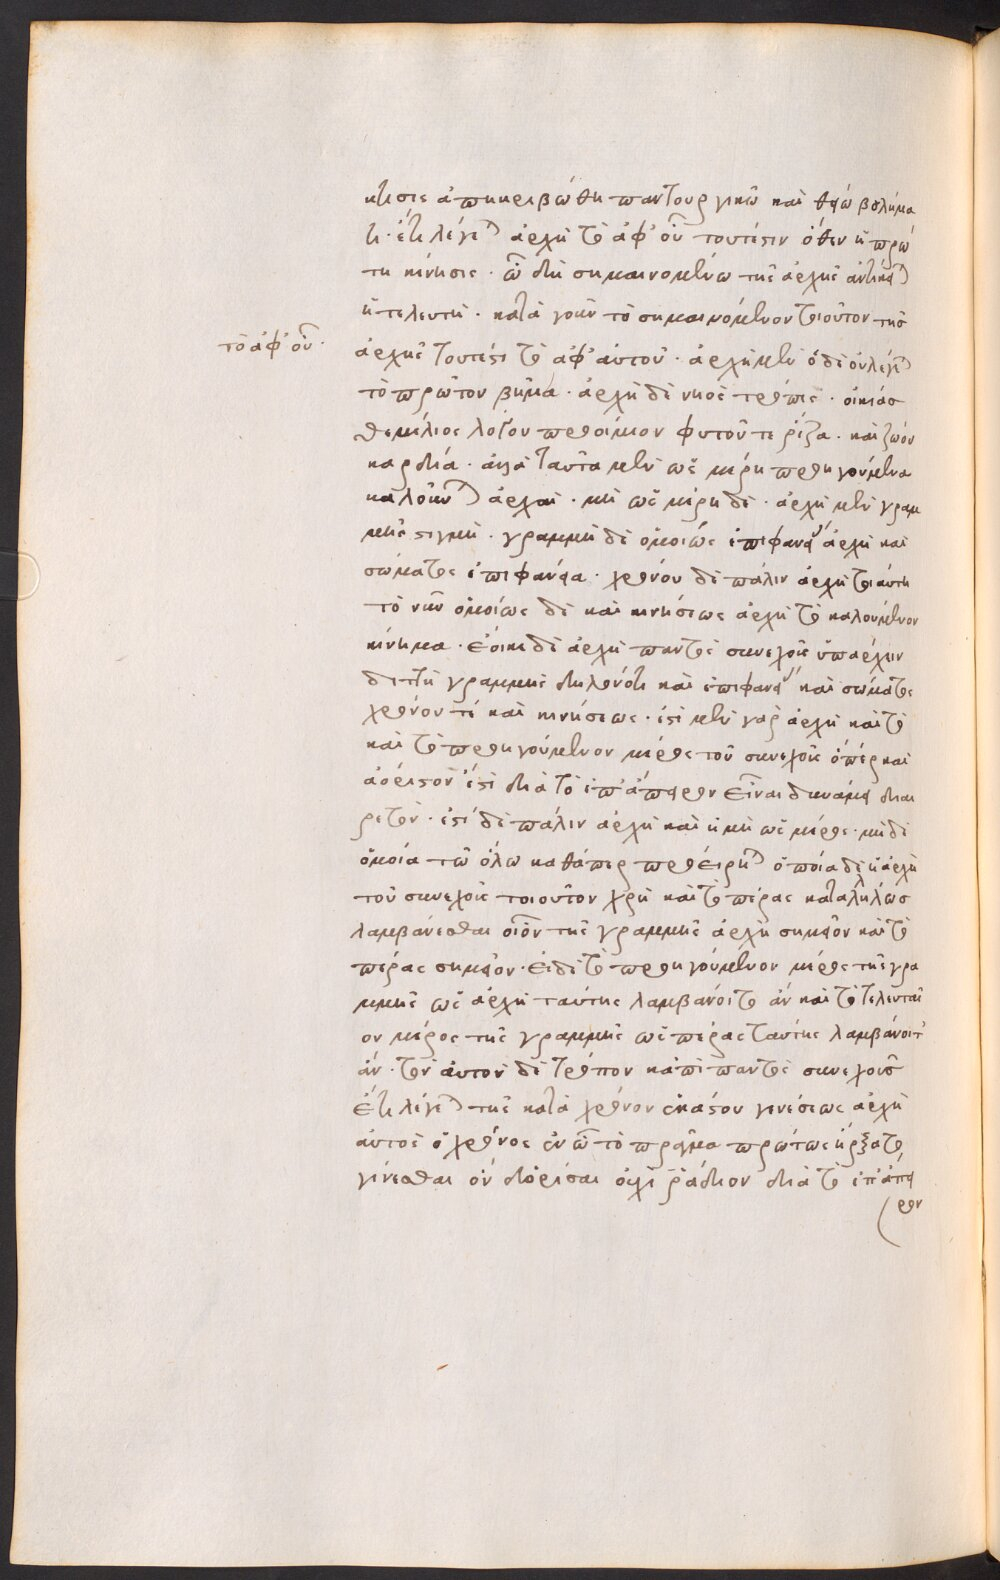 κτισις ἀπηκριβώθη παντουργικῶ καὶ θείω βουλήμα
τι· ἔτι λέγεται ἀρχὴ τὸ ἀφ' οὗ τουτέστιν ὅθεν ἡ πρώ
τη κίνησις· ὧ δὴ σημαινομένω τῆς ἀρχῆς ἀντίκειται
ἡ τελευτή· κατὰ γοῦν τὸ σημαινόμενον τοιοῦτον τῆς
τὸ ἀφ' οὗ·
ἀρχῆς τουτέστι τὸ ἀφ' αὐτοῦ· ἀρχὴ μὲν ὁδὲ οὐ λέγεται
τὸ πρῶτον βῆμα· ἀρχὴ δὲ νηὸς τρόπις· οἰκίας
θεμέλιος λόγου προοίμιον φυτοῦ τε ρίζα· καὶ ζώου
καρδία· ἀλλὰ ταῦτα μὲν ὡς μέρη προηγούμενα
καλοῦνται ἀρχαὶ· μὴ ὡς μέρη δὲ· ἀρχὴ μὲν γραμ
μῆς στιγμὴ· γραμμὴ δὲ ὁμοίως ἐπιφανείας ἀρχὴ καὶ
σώματος ἐπιφάνεια· χρόνου δὲ πάλιν ἀρχὴ τοιαύτη
τὸ νῦν ὁμοίως δὲ καὶ κινήσεως ἀρχὴ τὸ καλούμενον
κίνημα· ἔοικε δὲ ἀρχὴ παντὸς συνεχοῦς ὑπάρχειν
διττὴ γραμμῆς δηλονότι καὶ ἐπιφανείας καὶ σώματος
χρόνου τὲ καὶ κινήσεως· ἔστι μὲν γὰρ ἀρχὴ καὶ τὸ
καὶ τὸ προηγούμενον μέρος τοῦ συνεχοῦς ὅπερ καὶ
ἀόριστον ἐστὶ διὰ τὸ ἐπ' ἄπειρον εἶναι δυνάμει διαι
ρετὸν· ἔστι δὲ πάλιν ἀρχὴ καὶ ἡ μὴ ὡς μέρος· μὴ δὲ
ὁμοία τῶ ὅλω καθάπερ προείρηται ὁποία δὲ ἡ ἀρχὴ
τοῦ συνεχοῦς τοιοῦτον χρὴ καὶ τὸ πέρας καταλλήλως
λαμβάνεσθαι οἷον τῆς γραμμῆς ἀρχὴ σημεῖον καὶ τὸ
πέρας σημεῖον· εἰ δὲ τὸ προηγούμενον μέρος τῆς γρα
μμῆς ὡς ἀρχὴ ταύτης λαμβάνοιτο ἀν καὶ τὸ τελευταῖ
ον μέρος τῆς γραμμῆς ὡς πέρας ταύτης λαμβάνοιτ'
ἀν· τὸν αὐτὸν δὲ τρόπον κἀπὶ παντὸς συνεχοῦς
ἔτι λέγεται τῆς κατὰ χρόνον ἑκάστου γενέσεως ἀρχὴ
αὐτὸς ὁ χρόνος ἐν ὧ τὸ πρᾶγμα πρώτως ἤρξατο
γίνεσθαι ὃν διορίσαι οὐχὶ ῥάδιον διὰ τὸ ἐπ' ἄπει
ρον